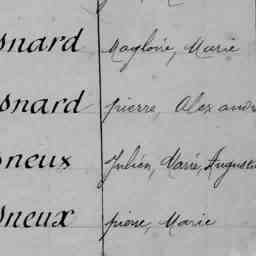 snard Magloire, Marie
snard pierre, Alexandr
sneux Julien, Marie, Augustin
sneux pierre, Marie